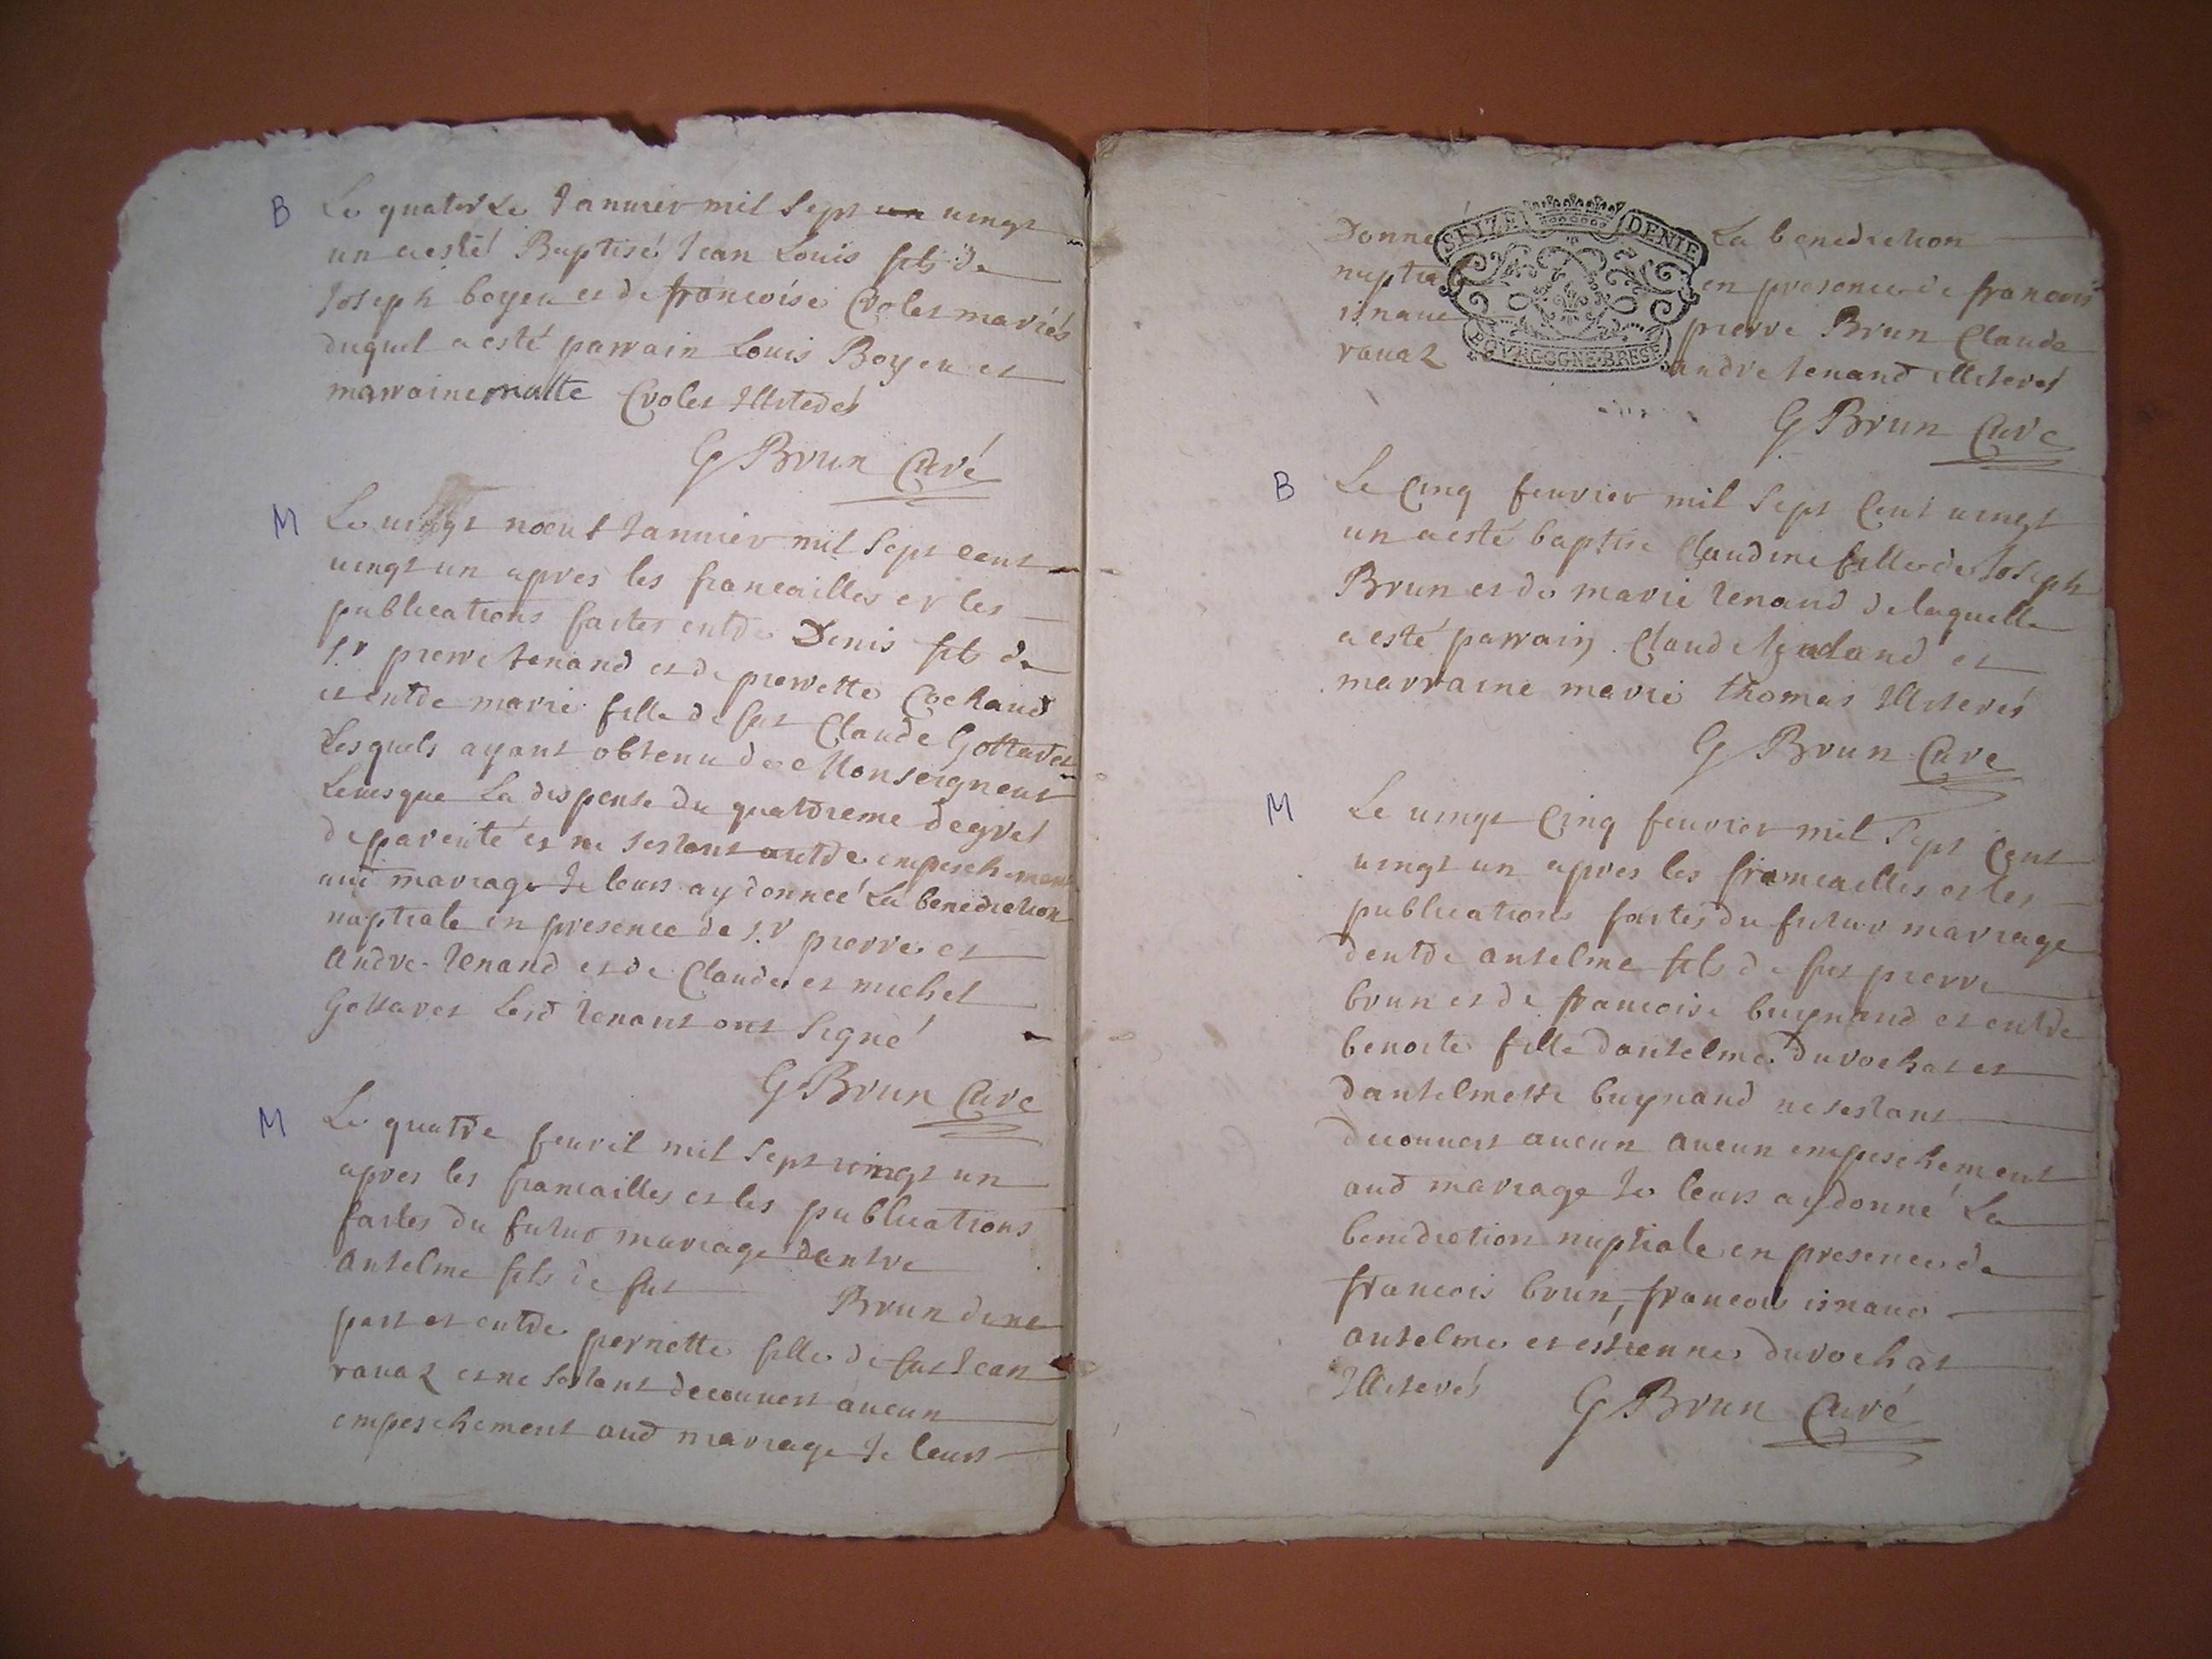 B
Le quatorze Januier mil Sept uingt
un a esté Baptisé Jean Louis fils de
Joseph boyer et de francoise Crolet mariés
duquel a esté parrain Louis Boyer et
marraine Crolet Illiterés
G Brun Curé
M
Le uingt noeuf Januier mil Sept cent
uingt un apres les fiancailles et les
publications faites entre Denis fils de
Sr pierre tenand et de pierrette Cochand
et entre marie fille de fut Claude Gottaret
Lesquels ayant obtenu de Monseigneur
Leuesque La dispense Du quatrieme degré
de parenté et ne sestant autre empeschement
aud mariage Je leurs ay donneé La benediction
nuptiale en presence de Sr pierre et
andre tenand et de Claude et michel
Gottaret Lesd tenant ont Signé
G Brun Cure
M
Le quatre feuril mil Sept uingt un
apres les fiancailles et les publications
faites du futur mariage dentre
antelme fils de fut Brun dune
part et entre pernette fille de fut Jean
rauaz et ne sestant decouuert aucun
empeschement aud mariage Je leurs
SEIZE DENIE
BOVRGOGNE·BRESE
Donné La benediction
nuptiale en presence de francois
isnaue pierre Brun Claude
rauaz andre tenand illiterés
G Brun Cure
B
Le Cinq feurier mil Sept Cent uingt
un a esté baptise Claudine fille de Joseph
Brun et de marie tenand de laquelle
a esté parrain Claude et
marraine marie thomas Illiterés
G Brun Cure
M
Le uingt Cinq feurier mil Sept Cent
uingt un apres les fiancailles et les
publications faites du futur mariage
dentre antelme fils de fut pierre
brun et de francoise buynand et entre
benoite fille dantelme durochat et
dantelmette buynand ne sestant
decouuert aucun aucun empeschement
aud mariage Je leurs ay donné La
benediction nuptiale en presence de
francois brun, francois isnaue
antelme et estienne durochat
Illiterés
G Brun Curé